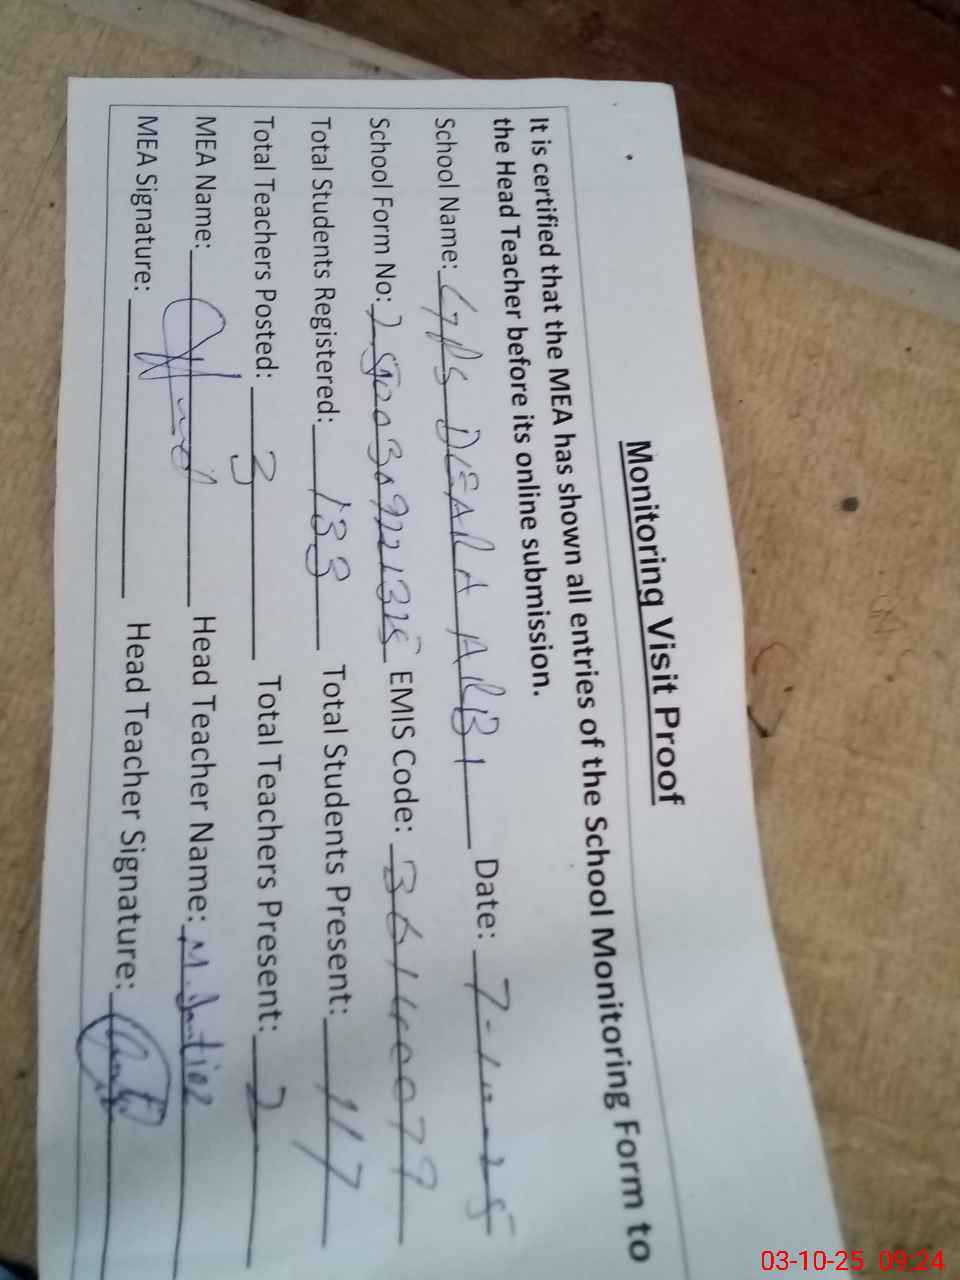 Monitoring Visit Proof
It is certified that the MEA has shown all entries of the School Monitoring Form to
the Head Teacher before its online submission.
School Name: GPS DEARA ARBI Date: 7-10-25
School Form No: EMIS Code:
Total Students Registered: 133 Total Students Present: 117
Total Teachers Posted: 3 Total Teachers Present: 2
MEA Name: Head Teacher Name: M.
MEA Signature: Head Teacher Signature:
03-10-25 09:24